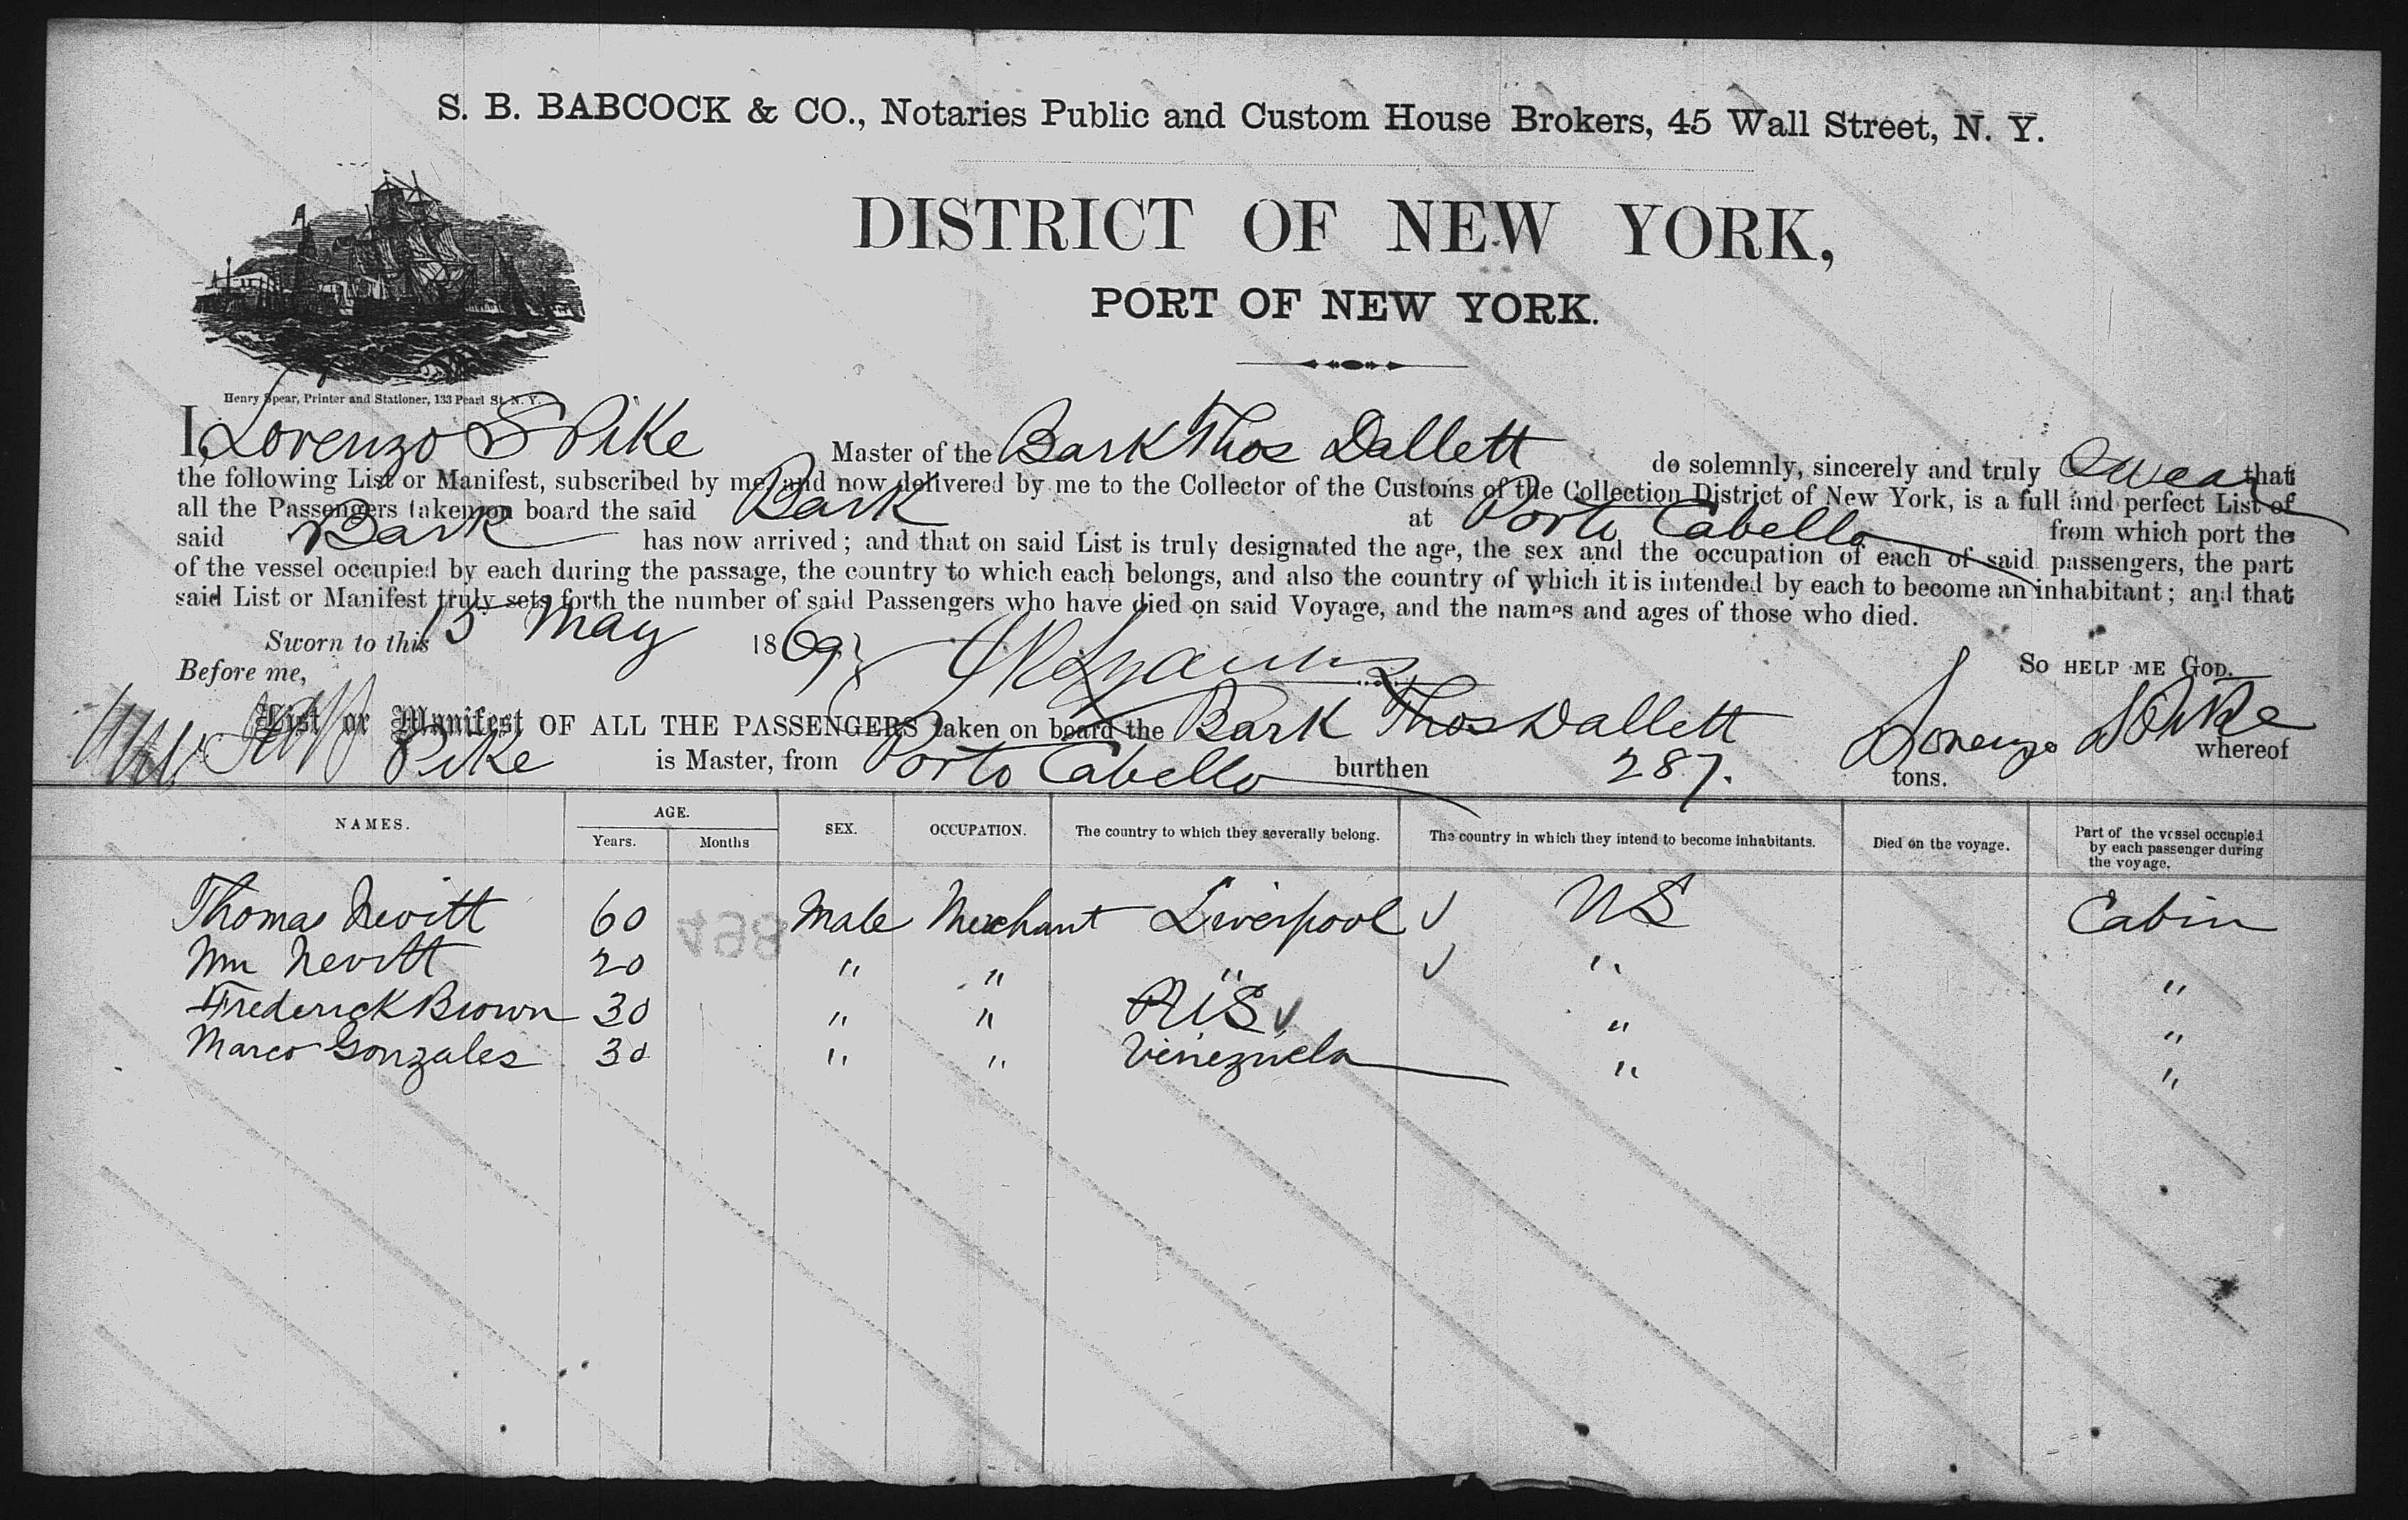 S. B. BABCOCK & CO., Notaries Public and Custom House Brokers, 45 Wall Street, N. Y.
DISTRICT OF NEW YORK,
PORT OF NEW YORK.
Henry Spear, Printer and Stationer, 133 Pearl St. N. Y.
I, Lorenzo S Pike Master of the Bark Thos Dallett do solemnly, sincerely and truly Swear that
the following List or Manifest, subscribed by me, and now delivered by me to the Collector of the Customs of the Collection District of New York, is a full and perfect List of
all the Passengers taken on board the said Bark at Porto Cabello from which port the
said Bark has now arrived; and that on said List is truly designated the age, the sex and the occupation of each of said passengers, the part
of the vessel occupied by each during the passage, the country to which each belongs, and also the country of which it is intended by each to become an inhabitant; and that
said List or Manifest truly sets forth the number of said Passengers who have died on said Voyage, and the names and ages of those who died.
Sworn to this 15 May 1869
So HELP ME GOD.
Before me,
Lorenzo S Pike
List or Manifest OF ALL THE PASSENGERS taken on board the Bark Thos Dallett whereof
Pike is Master, from Porto Cabello burthen 287. tons.
NAMES. AGE. SEX. OCCUPATION. The country to which they severally belong. The country in which they intend to become inhabitants. Died on the voyage. Part of the vessel occupied by each passenger during the voyage.
Years. Months
Thomas Nevitt 60 Male Merchant Liverpool √ US Cabin
Wm Nevitt 20 " " " √ " "
Frederick Brown 30 " " US √ " "
Marco Gonzales 30 " " Venezuela " "
894